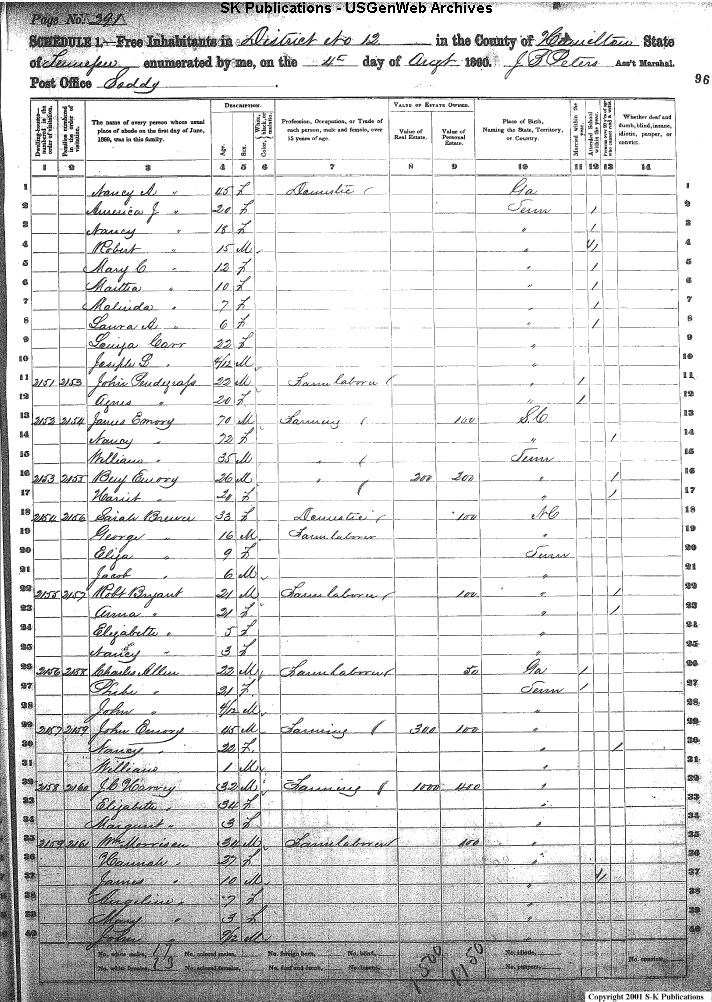 SK Publications - USGenWeb Archives
Page No. 291
SCHEDULE 1.—Free Inhabitants in District No 12 in the County of Hamilton State
of Tennessee enumerated by me, on the 4th day of Augt 1860. J B Peters Ass't Marshal.
Post Office Soddy
96
DESCRIPTION. VALUE OF ESTATE OWNED.
Dwelling-houses— numbered in the order of visitation. Families numbered in the order of visitation. The name of every person whose usual place of abode on the first day of June, 1860, was in this family. Age. Sex. Color, White, black, or mulatto. Profession, Occupation, or Trade of each person, male and female, over 15 years of age. Value of Real Estate. Value of Personal Estate. Place of Birth, Naming the State, Territory, or Country. Married within the year. Attended School within the year. Whether deaf and dumb, blind, insane, idiotic, pauper, or convict.
1 2 3 4 5 6 7 8 9 10 11 12 13 14
1 Nancy A " 45 F Domestic Ga 1
2 America J " 20 F Tenn 1 2
3 Nancy " 18 F " 1 3
4 Robert " 15 M " 1 4
5 Mary C " 12 F " 1 5
6 Martha " 10 F " 1 6
7 Malinda " 7 F " 1 7
8 Laura A " 6 F " 1 8
9 Louiza Carr 22 F " 9
10 Joseph L " 4/12 M " 10
11 2151 2153 John Pendegrass 22 M Farm laborer " 1 11
12 Agnes " 20 F " 1 12
13 2152 2154 James Emory 70 M Farming 100 S.C. 13
14 Nancy " 72 F " 1 14
15 William " 35 M " Tenn 15
16 2153 2155 Benj Emory 26 M " 200 200 " 1 16
17 Hariet " 20 F " 1 17
18 2154 2156 Sarah Brewer 33 F Domestic 100 NC 18
19 George " 16 M Farm laborer " 19
20 Eliza " 9 F Tenn 20
21 Jacob " 6 M " 21
22 2155 2157 Robt Bryant 21 M Farm laborer 100 " 1 22
23 Anna " 21 F " 1 23
24 Elizabeth " 5 F " 24
25 Nancy " 3 F " 25
26 2156 2158 Charles Allen 22 M Farm laborer 50 Ga 1 26
27 Phebe " 21 F Tenn 1 27
28 John " 4/12 M " 28
29 2157 2159 John Emory 45 M Farming 300 100 " 29
30 Nancy " 22 F " 1 30
31 William 1 M " 31
32 2158 2160 J C Harvey 32 M Farming 1000 400 " 32
33 Elizabeth " 34 F " 33
34 Margaret " 3 F " 34
35 2159 2161 Wm Morrison 30 M Farm laborer 100 " 35
36 Hannah " 27 F " 36
37 James " 10 M " 1 37
38 Angeline " 7 F " 38
39 Mary " 3 F " 39
40 John " 9/12 M " 40
No. white males, 17 No. colored males, No. foreign born, No. blind, 1500 1150 No. idiotic, No. convicts,
No. white females, 23 No. colored females, No. deaf and dumb, No. insane, No. paupers,
Copyright 2001 S-K Publications